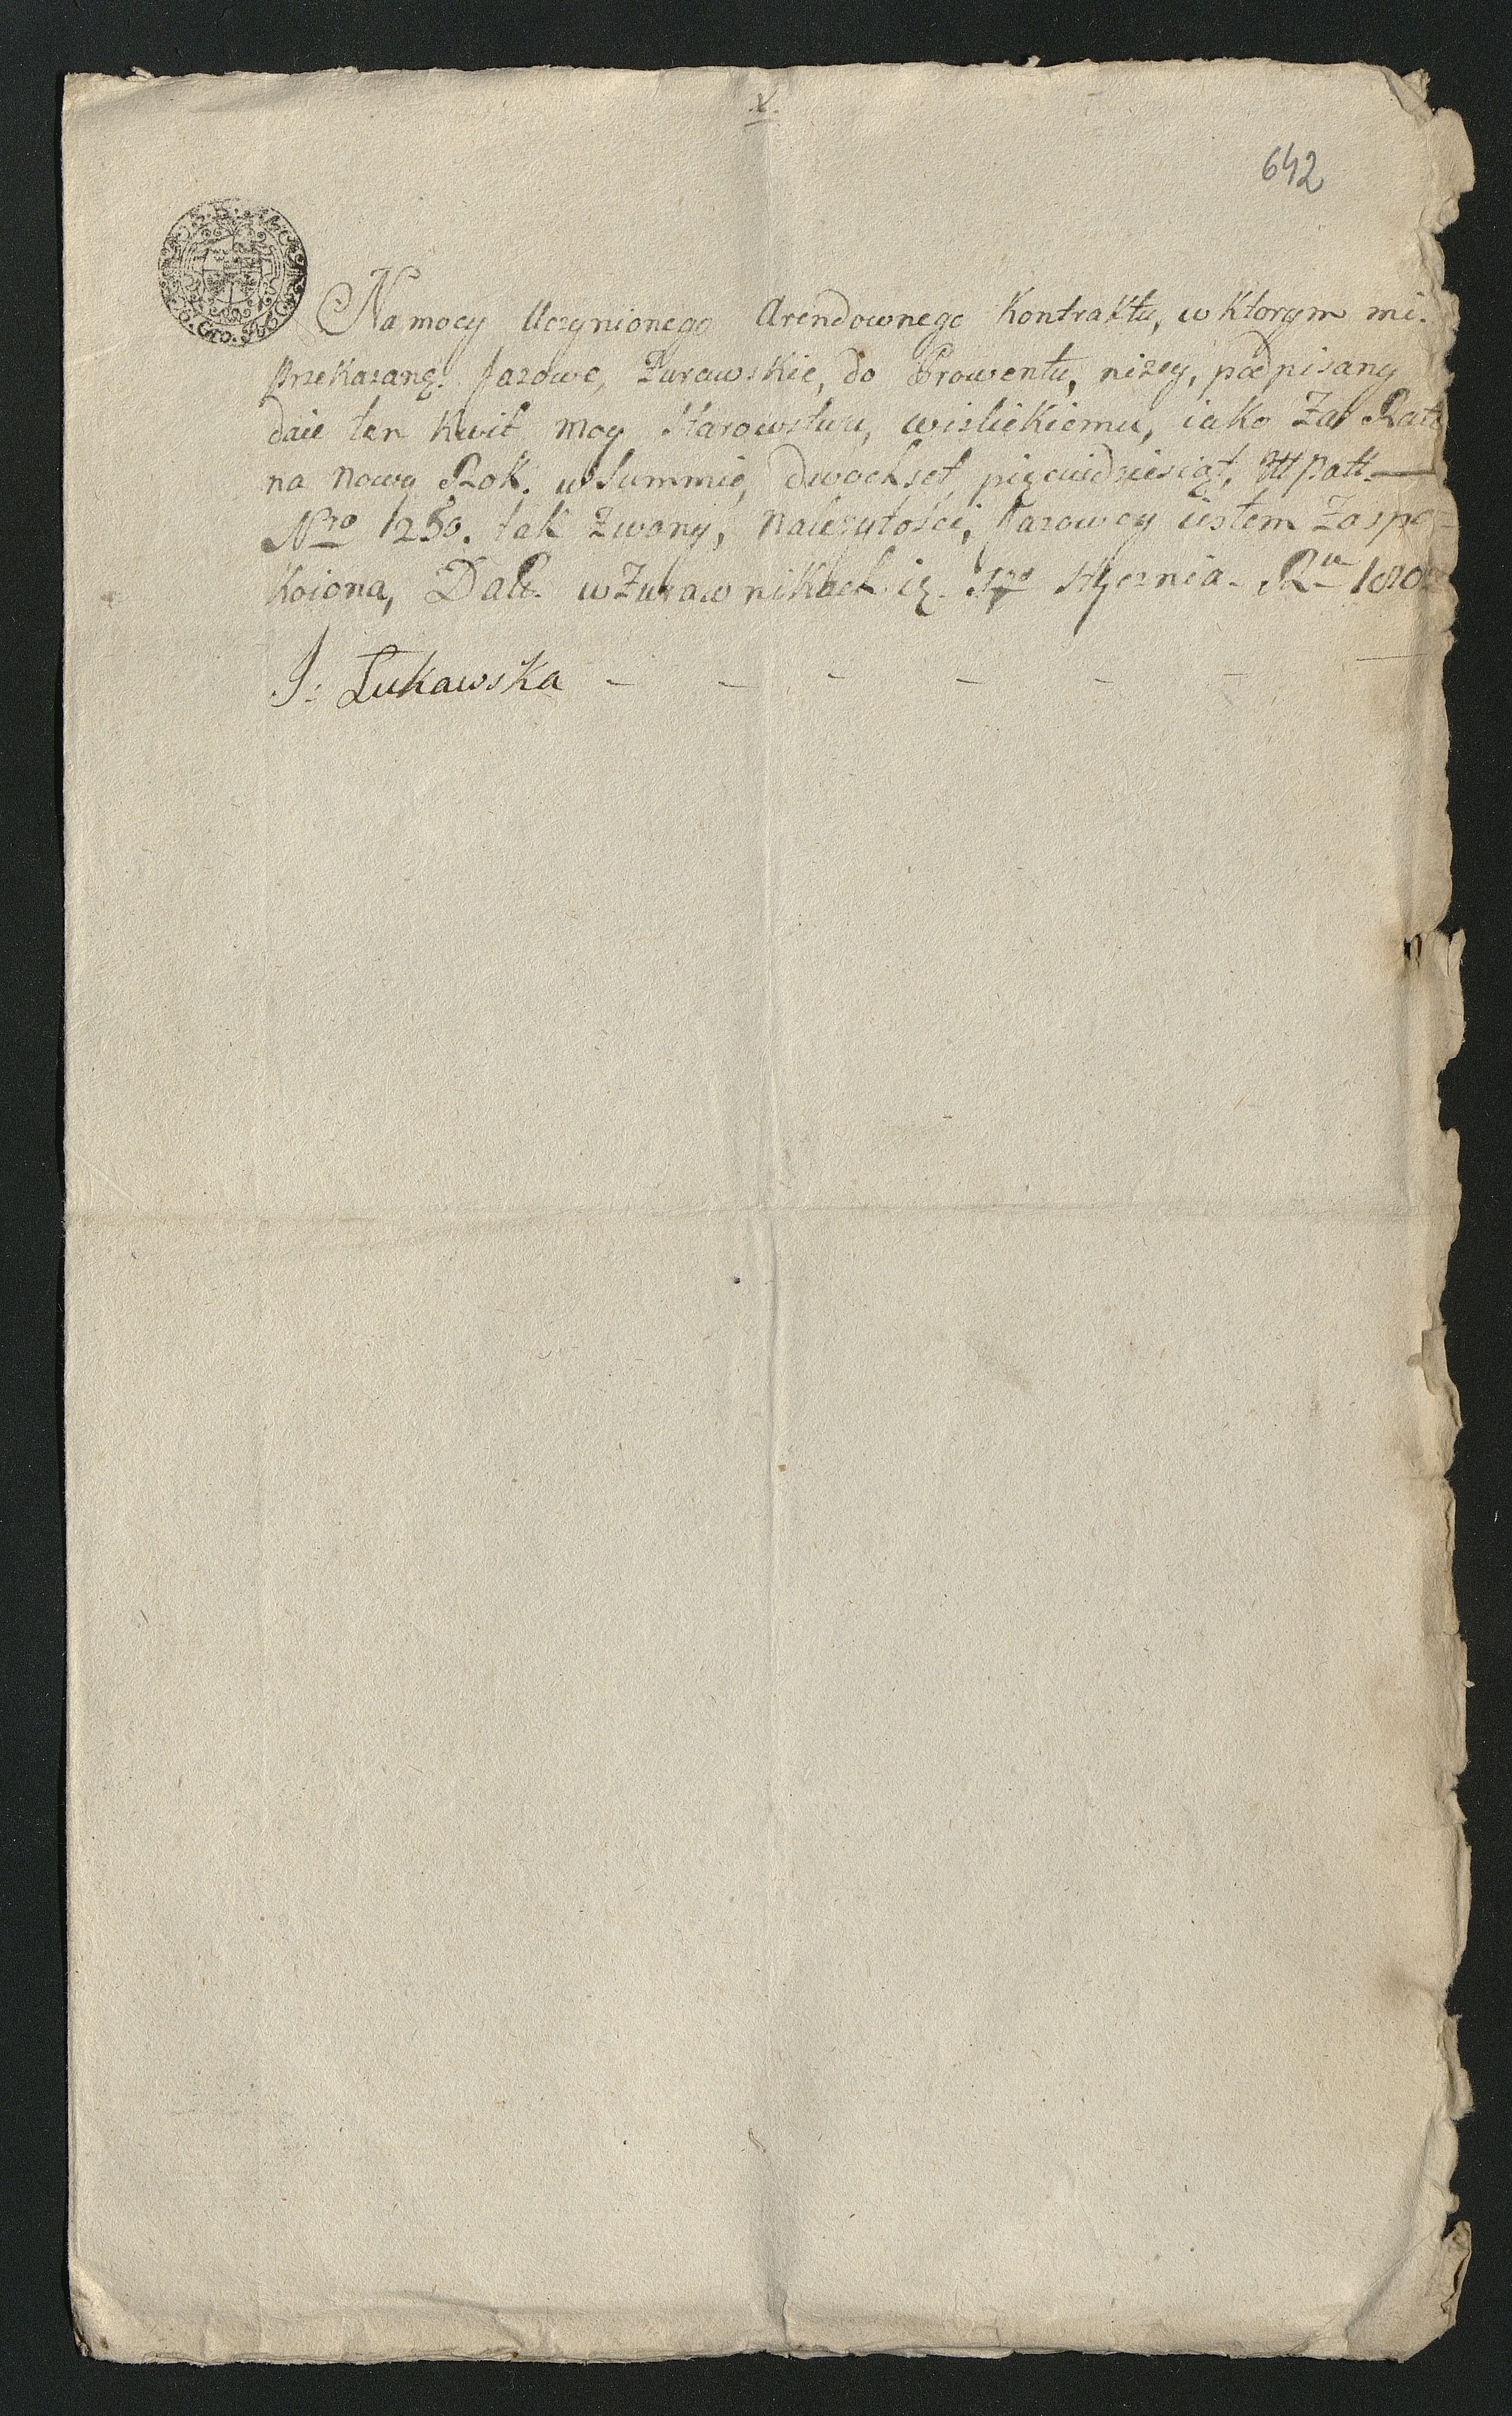 642
Na mocy Uczynionego Arendownego Kontraktu, w ktorym mi.
przekazaną. Jazowe, Zurawskie, do Prowentu, niżey, podpisany
daie ten kwit moy Starowstwu, wislickiemu, iako Za Rate
na nowy Rok. w Summie, dwochset pięcudziesiąt,
Nro 1250. tak zwany, Należytości, Jazowey iestem Zaspo-
koiona, Dali. w Zurawnikach Stycznia. Ru
J: Łukawska